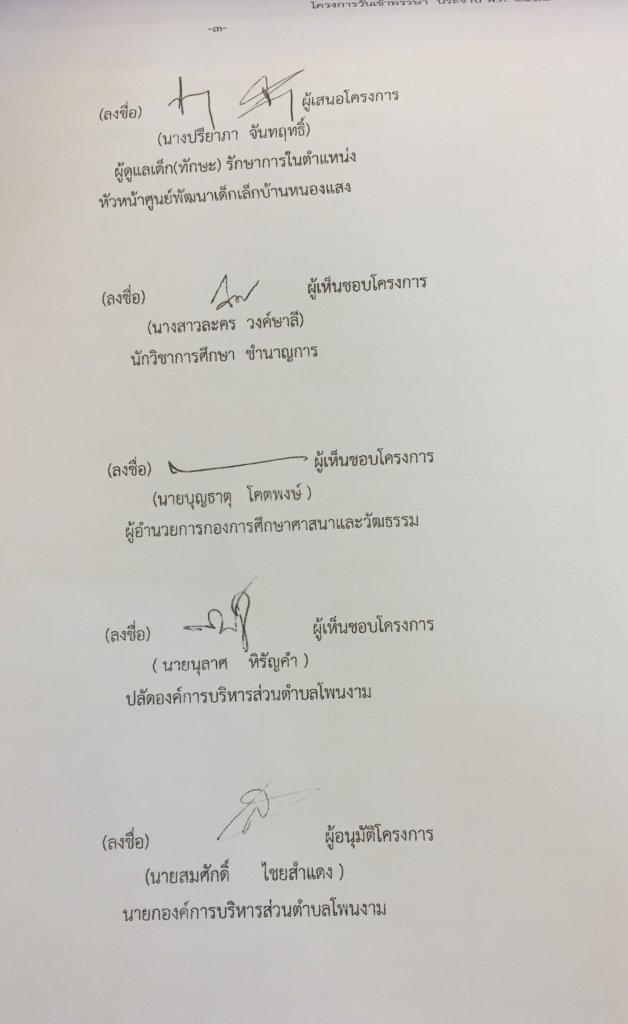 โครงการวันเข้าพรรษา ประจำปี พ.ศ.
-๓-
(ลงชื่อ) ผู้เสนอโครงการ
(นางปรียาภา จันทฤทธิ์)
ผู้ดูแลเด็ก(ทักษะ) รักษาการในตำแหน่ง
หัวหน้าศูนย์พัฒนาเด็กเล็กบ้านหนองแสง
(ลงชื่อ) ผู้เห็นชอบโครงการ
(นางสาวละคร วงค์ษาลี)
นักวิชาการศึกษา ชำนาญการ
(ลงชื่อ) ผู้เห็นชอบโครงการ
(นายบุญธาตุ โคตพงษ์ )
ผู้อำนวยการกองการศึกษาศาสนาและวัฒธรรม
(ลงชื่อ) ผู้เห็นชอบโครงการ
( นายนุลาศ หิรัญคำ )
ปลัดองค์การบริหารส่วนตำบลโพนงาม
(ลงชื่อ) ผู้อนุมัติโครงการ
(นายสมศักดิ์ ไชยสำแดง )
นายกองค์การบริหารส่วนตำบลโพนงาม